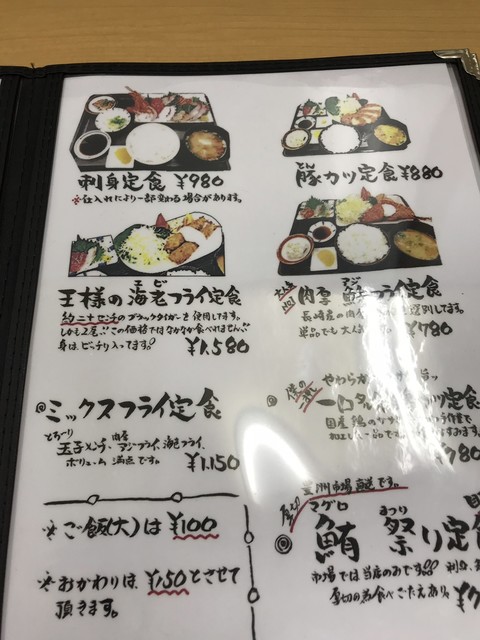 刺身定食 ¥980
※仕入れにより一部変わる場合があります。
とん
豚カツ定食 ¥880
エビ
王様の海老フライ定食
約二十センチのブラックタイガーを使用してます。
しかも2尾!!この価格ではなかなか食べれません!!
身は、ビッチリ入ってます。
¥1,580
アジ
肉厚 鯵フライ定食
長崎産の肉
選別してます。
単品でも大人
¥780
◎ミックスフライ定食
玉子メンチ、肉厚アジフライ、海老フライ、
ボリューム満点です。
¥1,150
やわらか
一口
国産鶏の
780
※ご飯(大)は ¥100
※おかわりは、¥150とさせて
頂きます。
豊洲市場直送です。
マグロ
まつ
◎ 鮪 祭り定
市場では当店のみです
厚切の為食べごたえあり